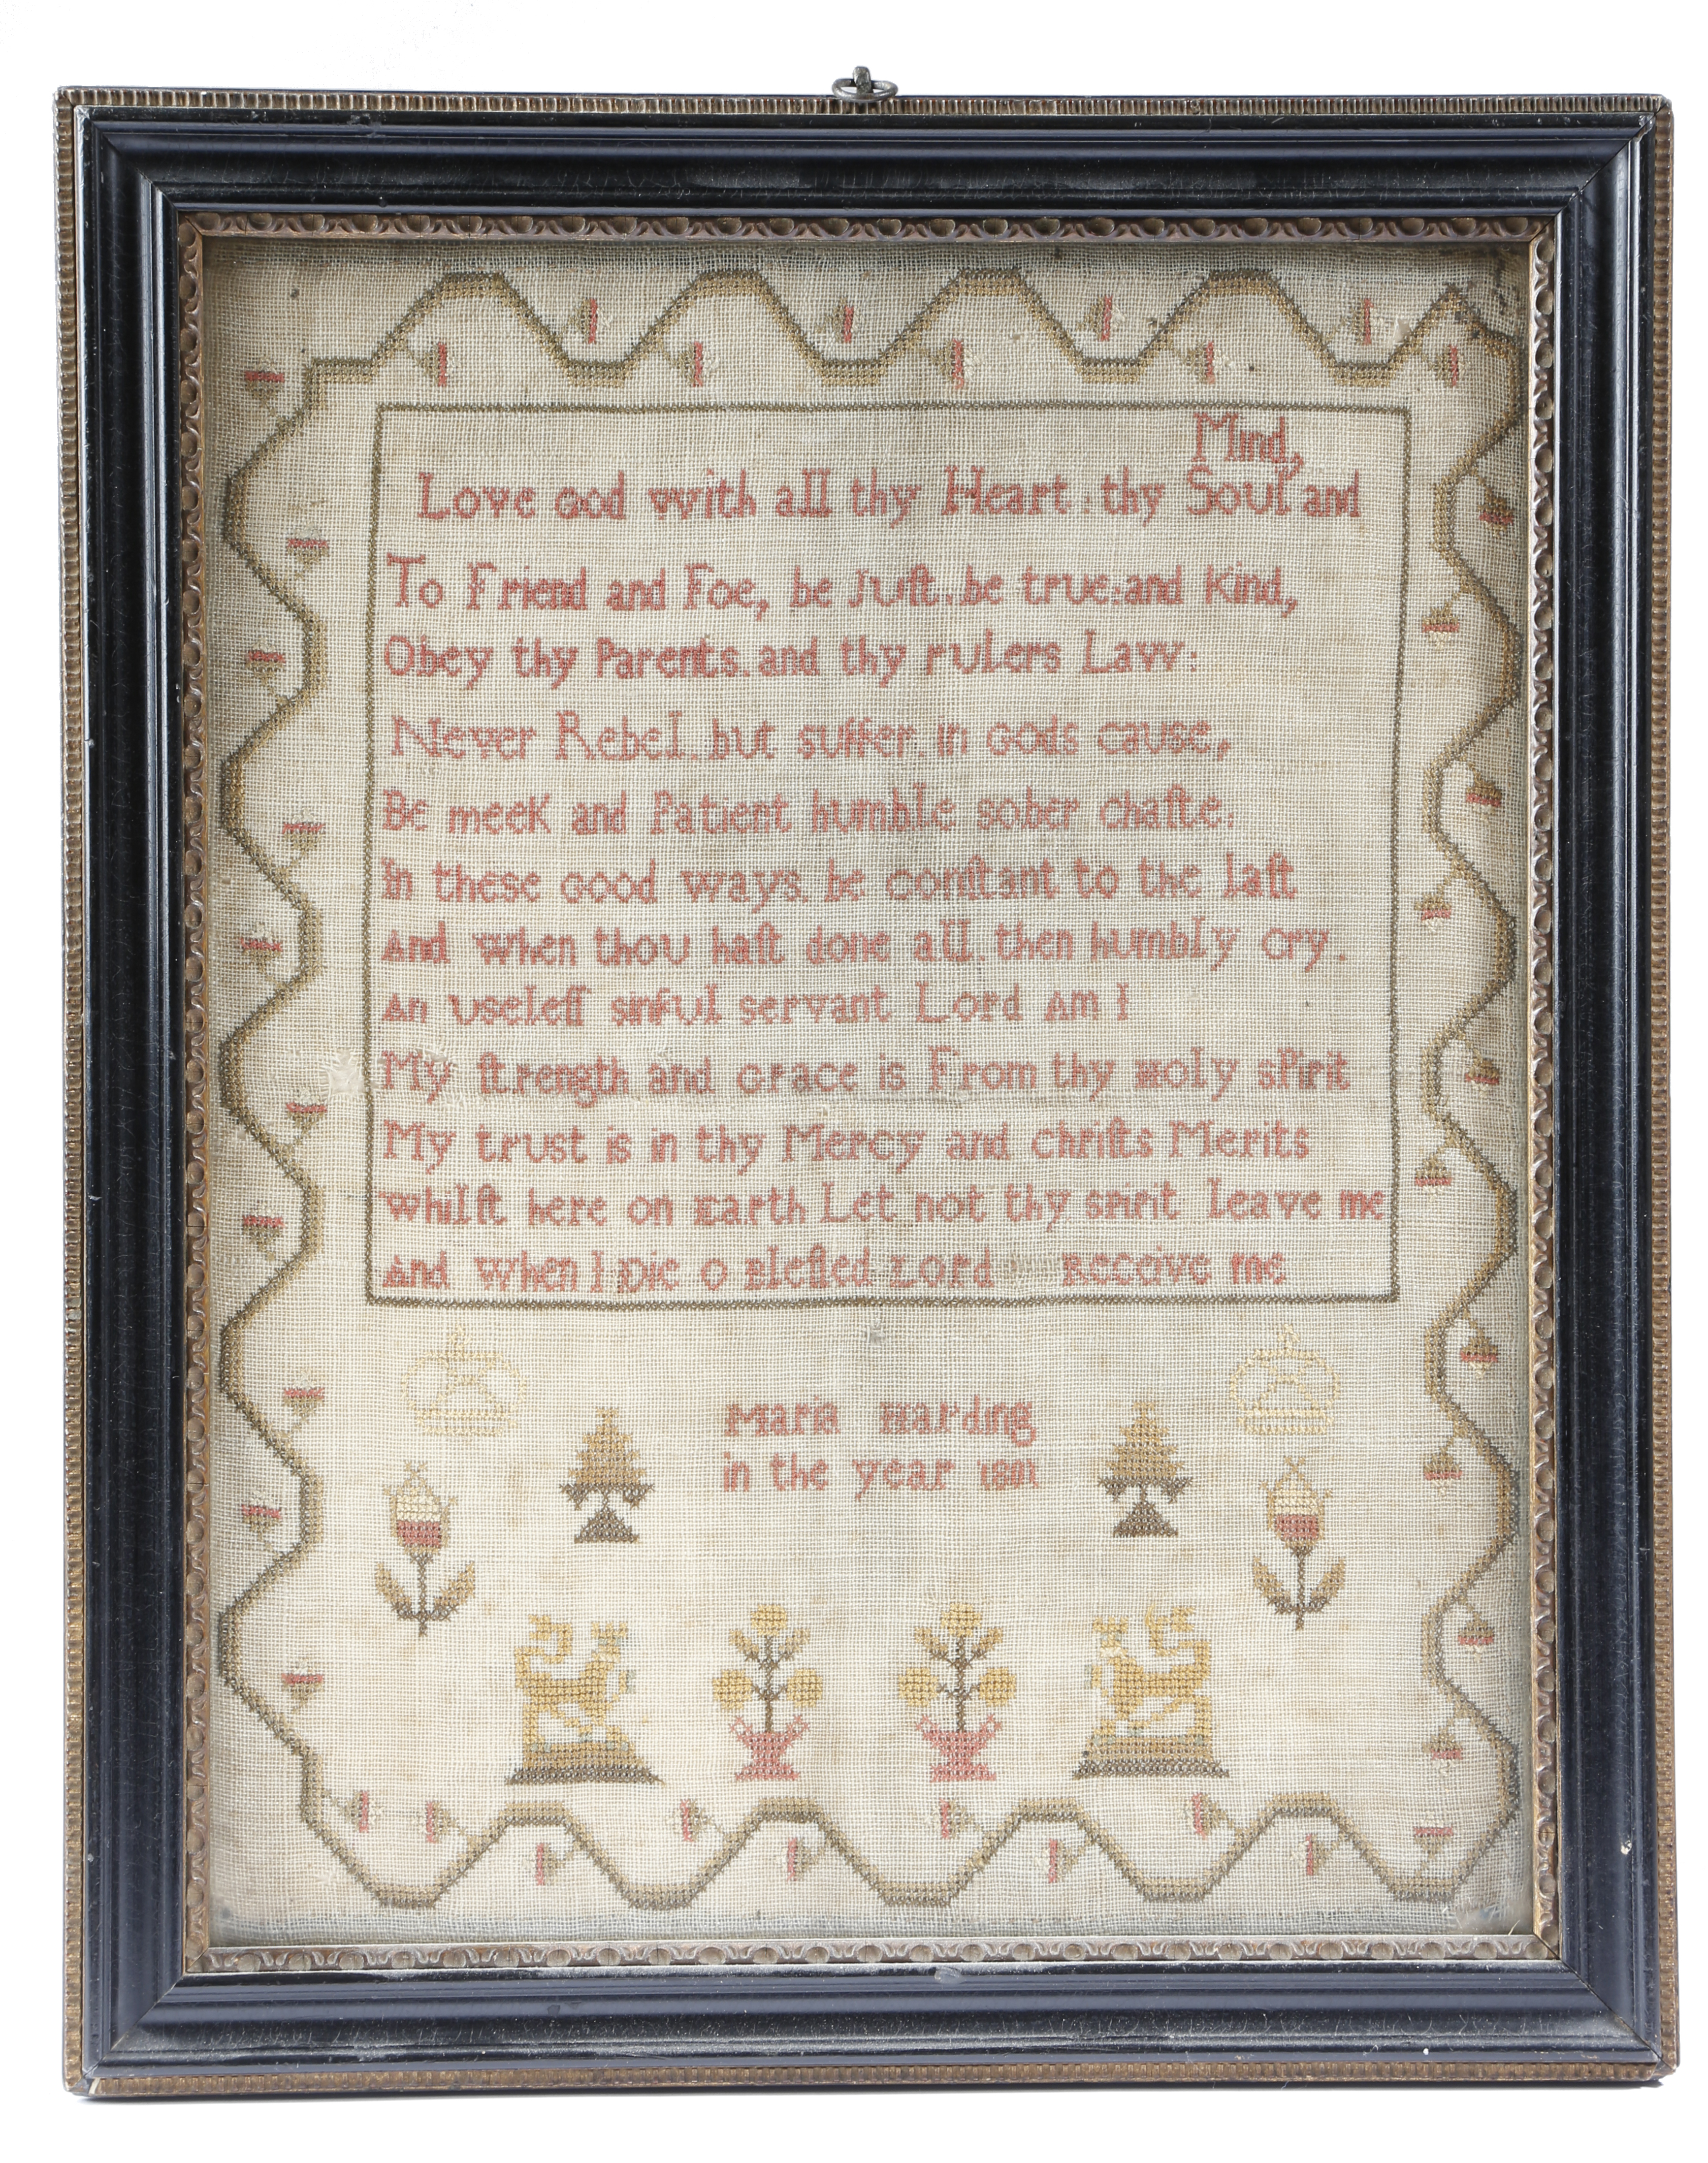 Mind,
Love God with all thy Heart : thy Soul and
To Friend and Foe, be Juſt . be true : and Kind,
Obey thy Parents . and thy rulers Law :
Never Rebel . but suffer . in Gods cause,
Be meek and Patient humble sober chaſte :
In these Good ways . be conſtant to the laſt
And when thou haſt done all . then humbly Cry .
An useleſſ sinful servant Lord Am I
My ſtrength and Grace is From thy Holy sPirit
My trust is in thy Mercy and Chriſts Merits
whilſt here on Earth Let not thy spirit leave me
And when I Die O Bleſſed Lord Receive me
Maria Harding
in the year 1801